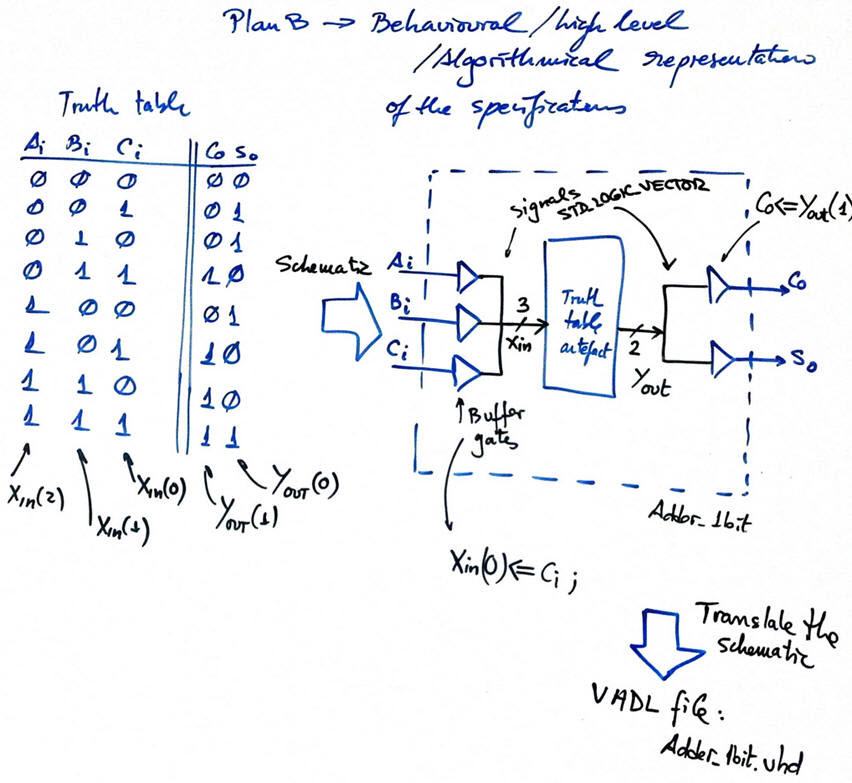 Plan B → Behavioural / high level
/ Algorithmical representation
of the specifications
Truth table
Ai Bi Ci Co So
0 0 0 0 0
0 0 1 0 1
0 1 0 0 1
0 1 1 1 0
1 0 0 0 1
1 0 1 1 0
1 1 0 1 0
1 1 1 1 1
Xin(2)
Xin(1)
Xin(0)
YOUT(1)
YOUT(0)
Schematic
Ai
Bi
Ci
signals
STD_LOGIC_VECTOR
3
Xin
Truth
table
artefact
2
Yout
Co<=Yout(1)
Co
So
Buffer
gates
Adder_1bit
Xin(0)<= Ci ;
Translate the
schematic
VHDL file:
Adder_1bit.vhd